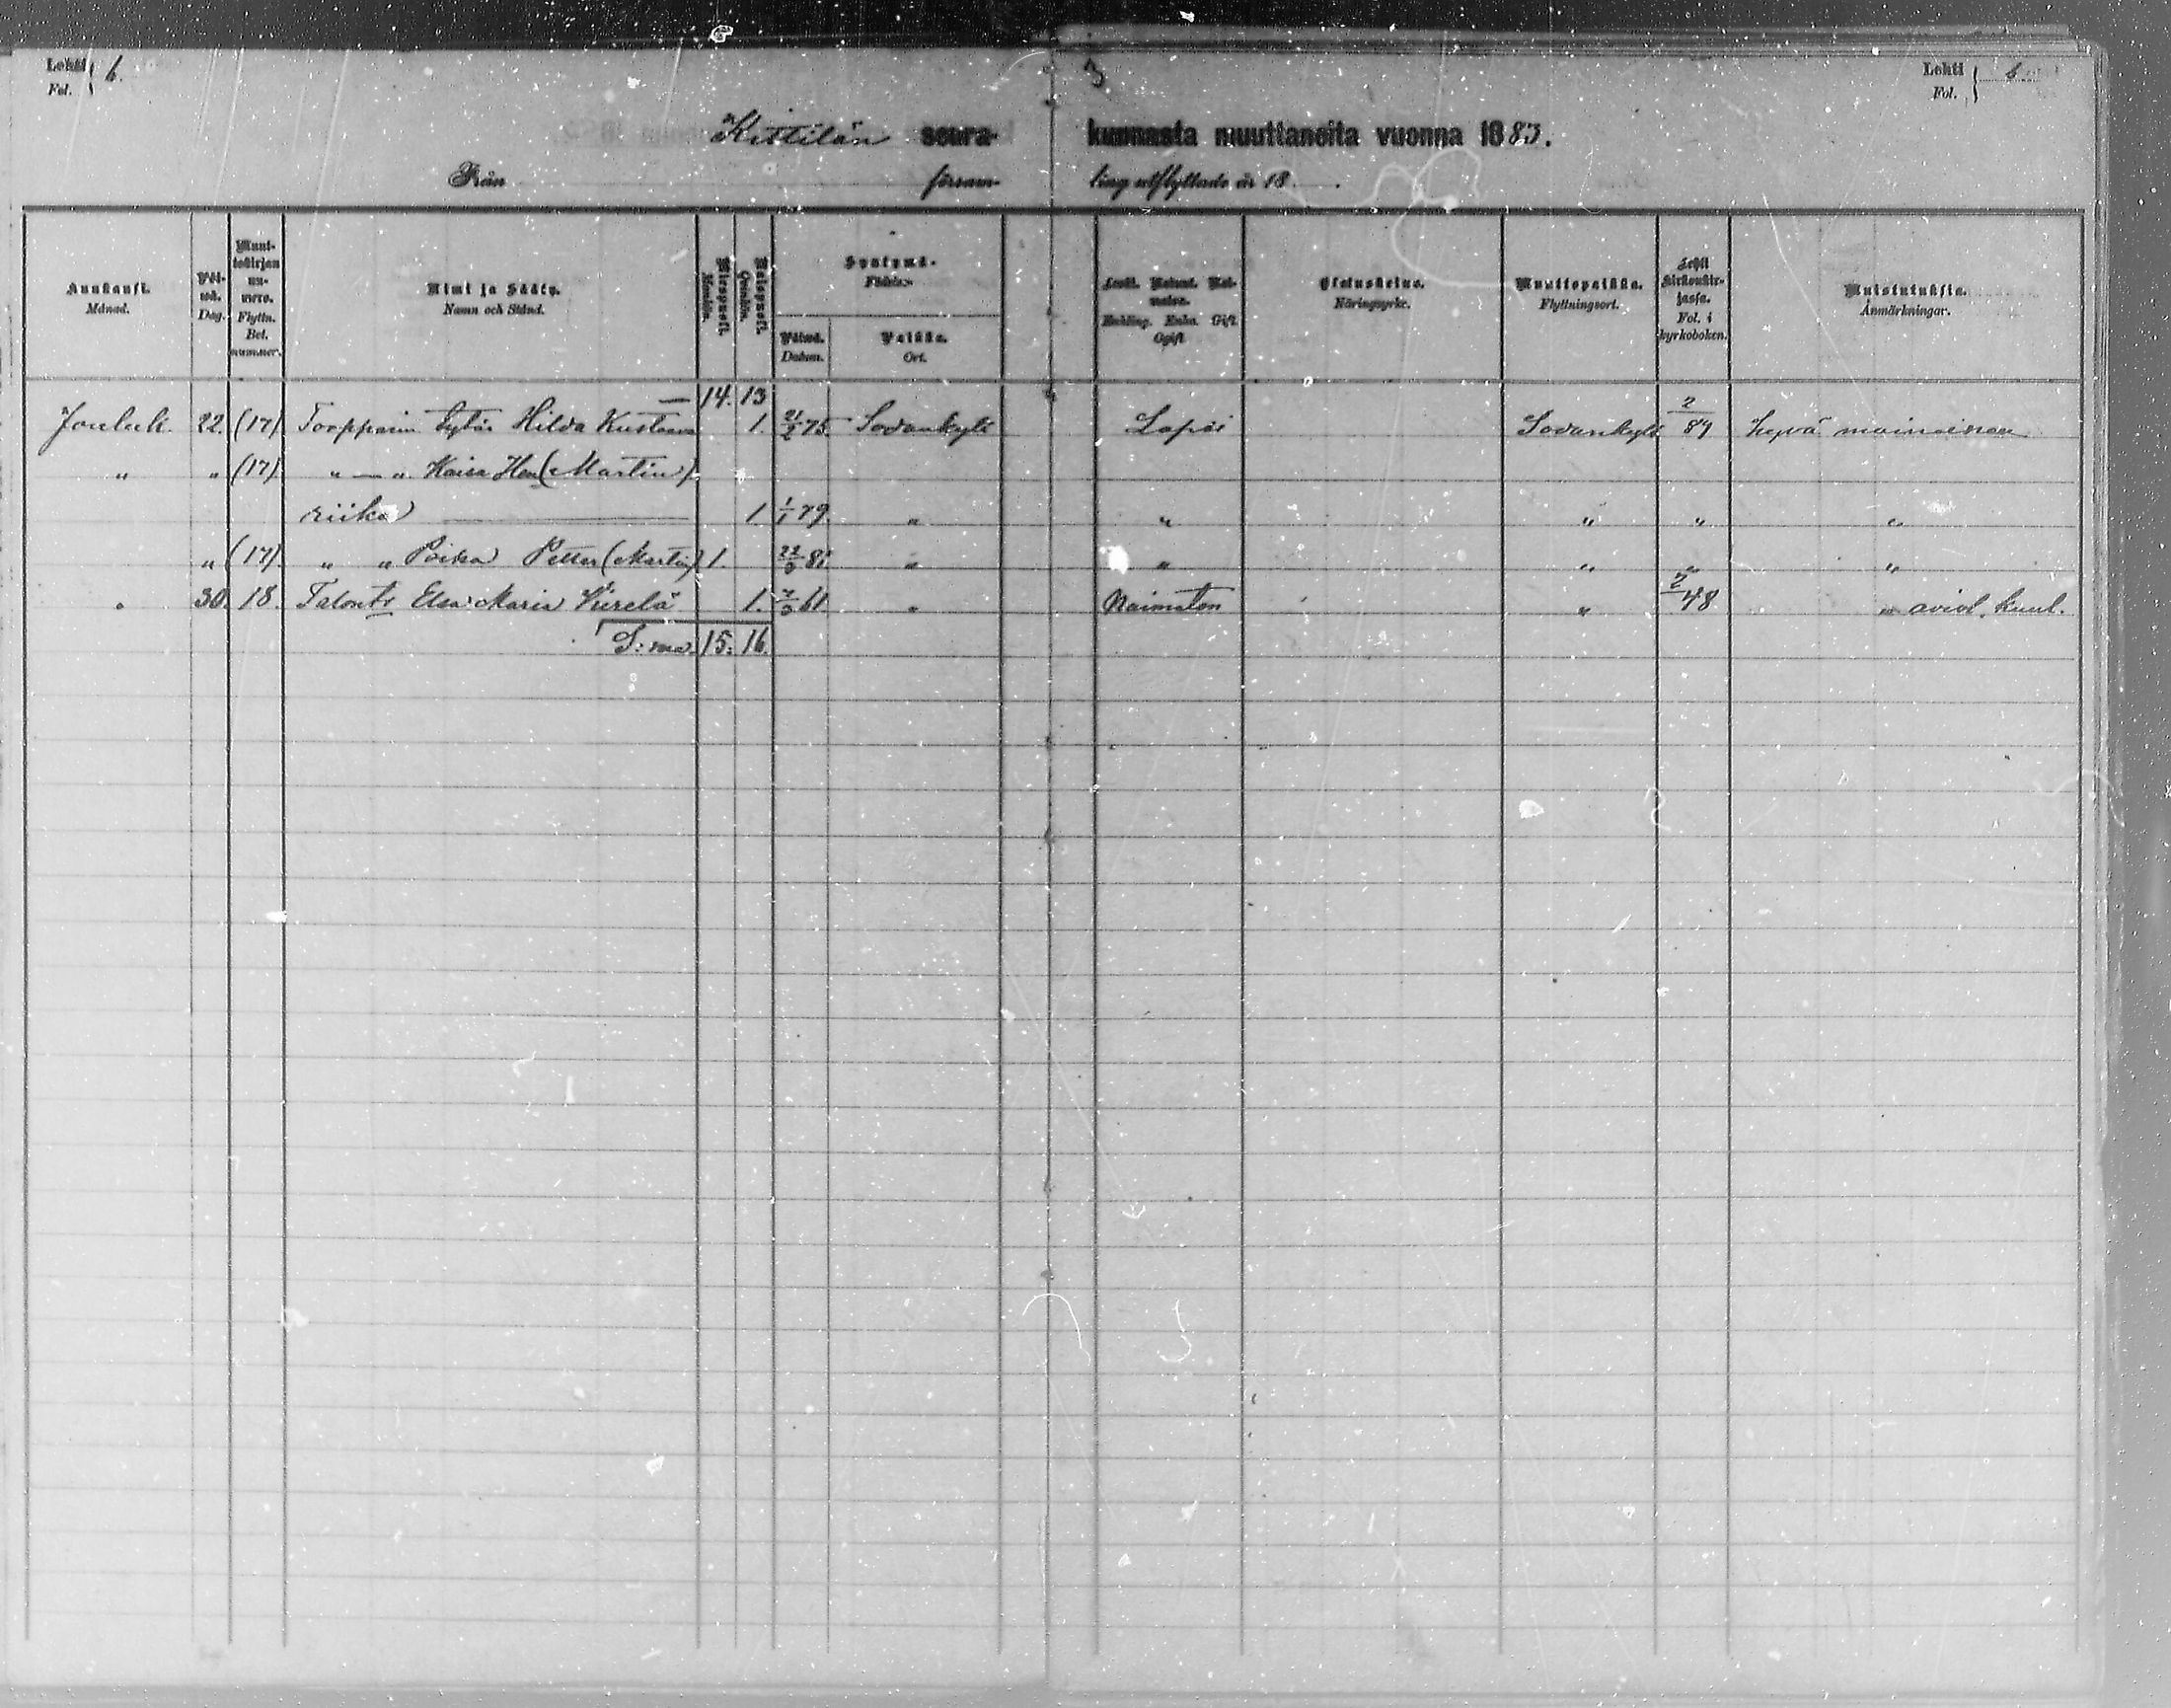 Lehti 6.
Fol.
3
Lehti 6
Fol.
Kittilän seura- kunnasta muuttaneita vuonna 1883.
Från försam- ling utflyttade år 18 .
Kuukausi. Månad.
Päi-wä. Dag.
Muut-tokirjan nu-mero. Flyttn. Bet. nummer.
Nimi ja Sääty. Namn och Stånd.
Miespuoli. Mankön.
Naispuoli. Qvinkön.
Syntymä- Födelse-
Päiwä. Datum.
Paikka. Ort.
Leski. Naimat. Nai-maton. Enkling. Enka. Gift. Ogift
Elatuskeino. Näringsyrke.
Muuttopaikka. Flyttningsort.
Lehti Kirkonkir-jassa. Fol. i kyrkoboken.
Muistutuksia. Anmärkningar.
— 14. 13
Jouluk. 22. (17) Torpparin tytär Hilda Kustaava 1. 21/2 75. Sodankylä Lapsi Sodankylä 2/89 hyvä maineinen
" " (17). " — " Kaisa Hen (Martin)
riika 1. 1/1 79. " " " " "
" (17). " " Poika Petter (Martin) 1. 22/9 81. " " " " "
" 30. 18. Talontr Elsa Maria 1. 61 " Naimaton " 2/48 " aviol. kuul.
S:ma. 15. 16.